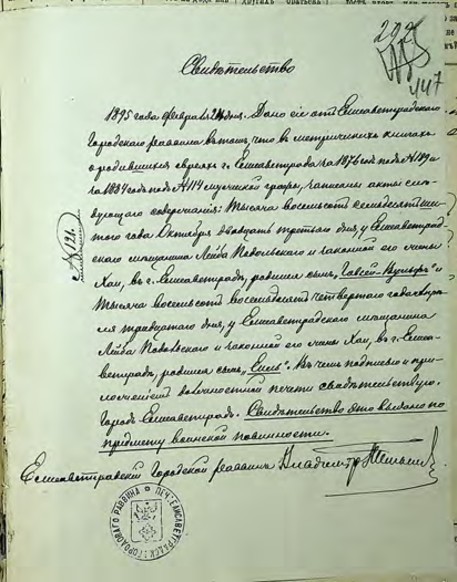 292
447
Свидѣтельство
1895 года Февраля 24 дня. Дано сіе отъ Елисаветградскаго
Городскаго раввина въ томъ, что въ метрическихъ книгахъ
о родившихся евреяхъ г. Елисаветграда за 1876 годъ подъ № 189 и
за 1884 годъ подъ № 114 мужеской графы, записаны акты слѣ-
дующаго содержанія: Тысяча восемьсотъ семьдесятъ шес-
таго года Октября двадцать третьяго дня, у Елисаветград-
скаго мѣщанина Лейба Подольскаго и законной его жены
Хаи, въ г. Елисаветградѣ, родился сынъ, и
Тысяча восемьсотъ восемьдесятъ четвертаго года Апрѣ-
ля тридцатаго дня, у Елисаветградскаго мѣщанина
Лейба Подольскаго и законной его жены Хаи, въ г. Елиса-
ветградѣ, родился сынъ „ “. Въ чемъ подписью и при-
ложеніемъ должностной печати свидѣтельствую.
Городъ Елисаветградъ. Свидѣтельство это выдано по
предмету воинской повинности.
Елисаветградскій Городской раввинъ Владимiръ
№ 121.
ПЕЧ. ЕЛИСАВЕТГРАДСК. ГОРОДОВАГО РАВВИНА